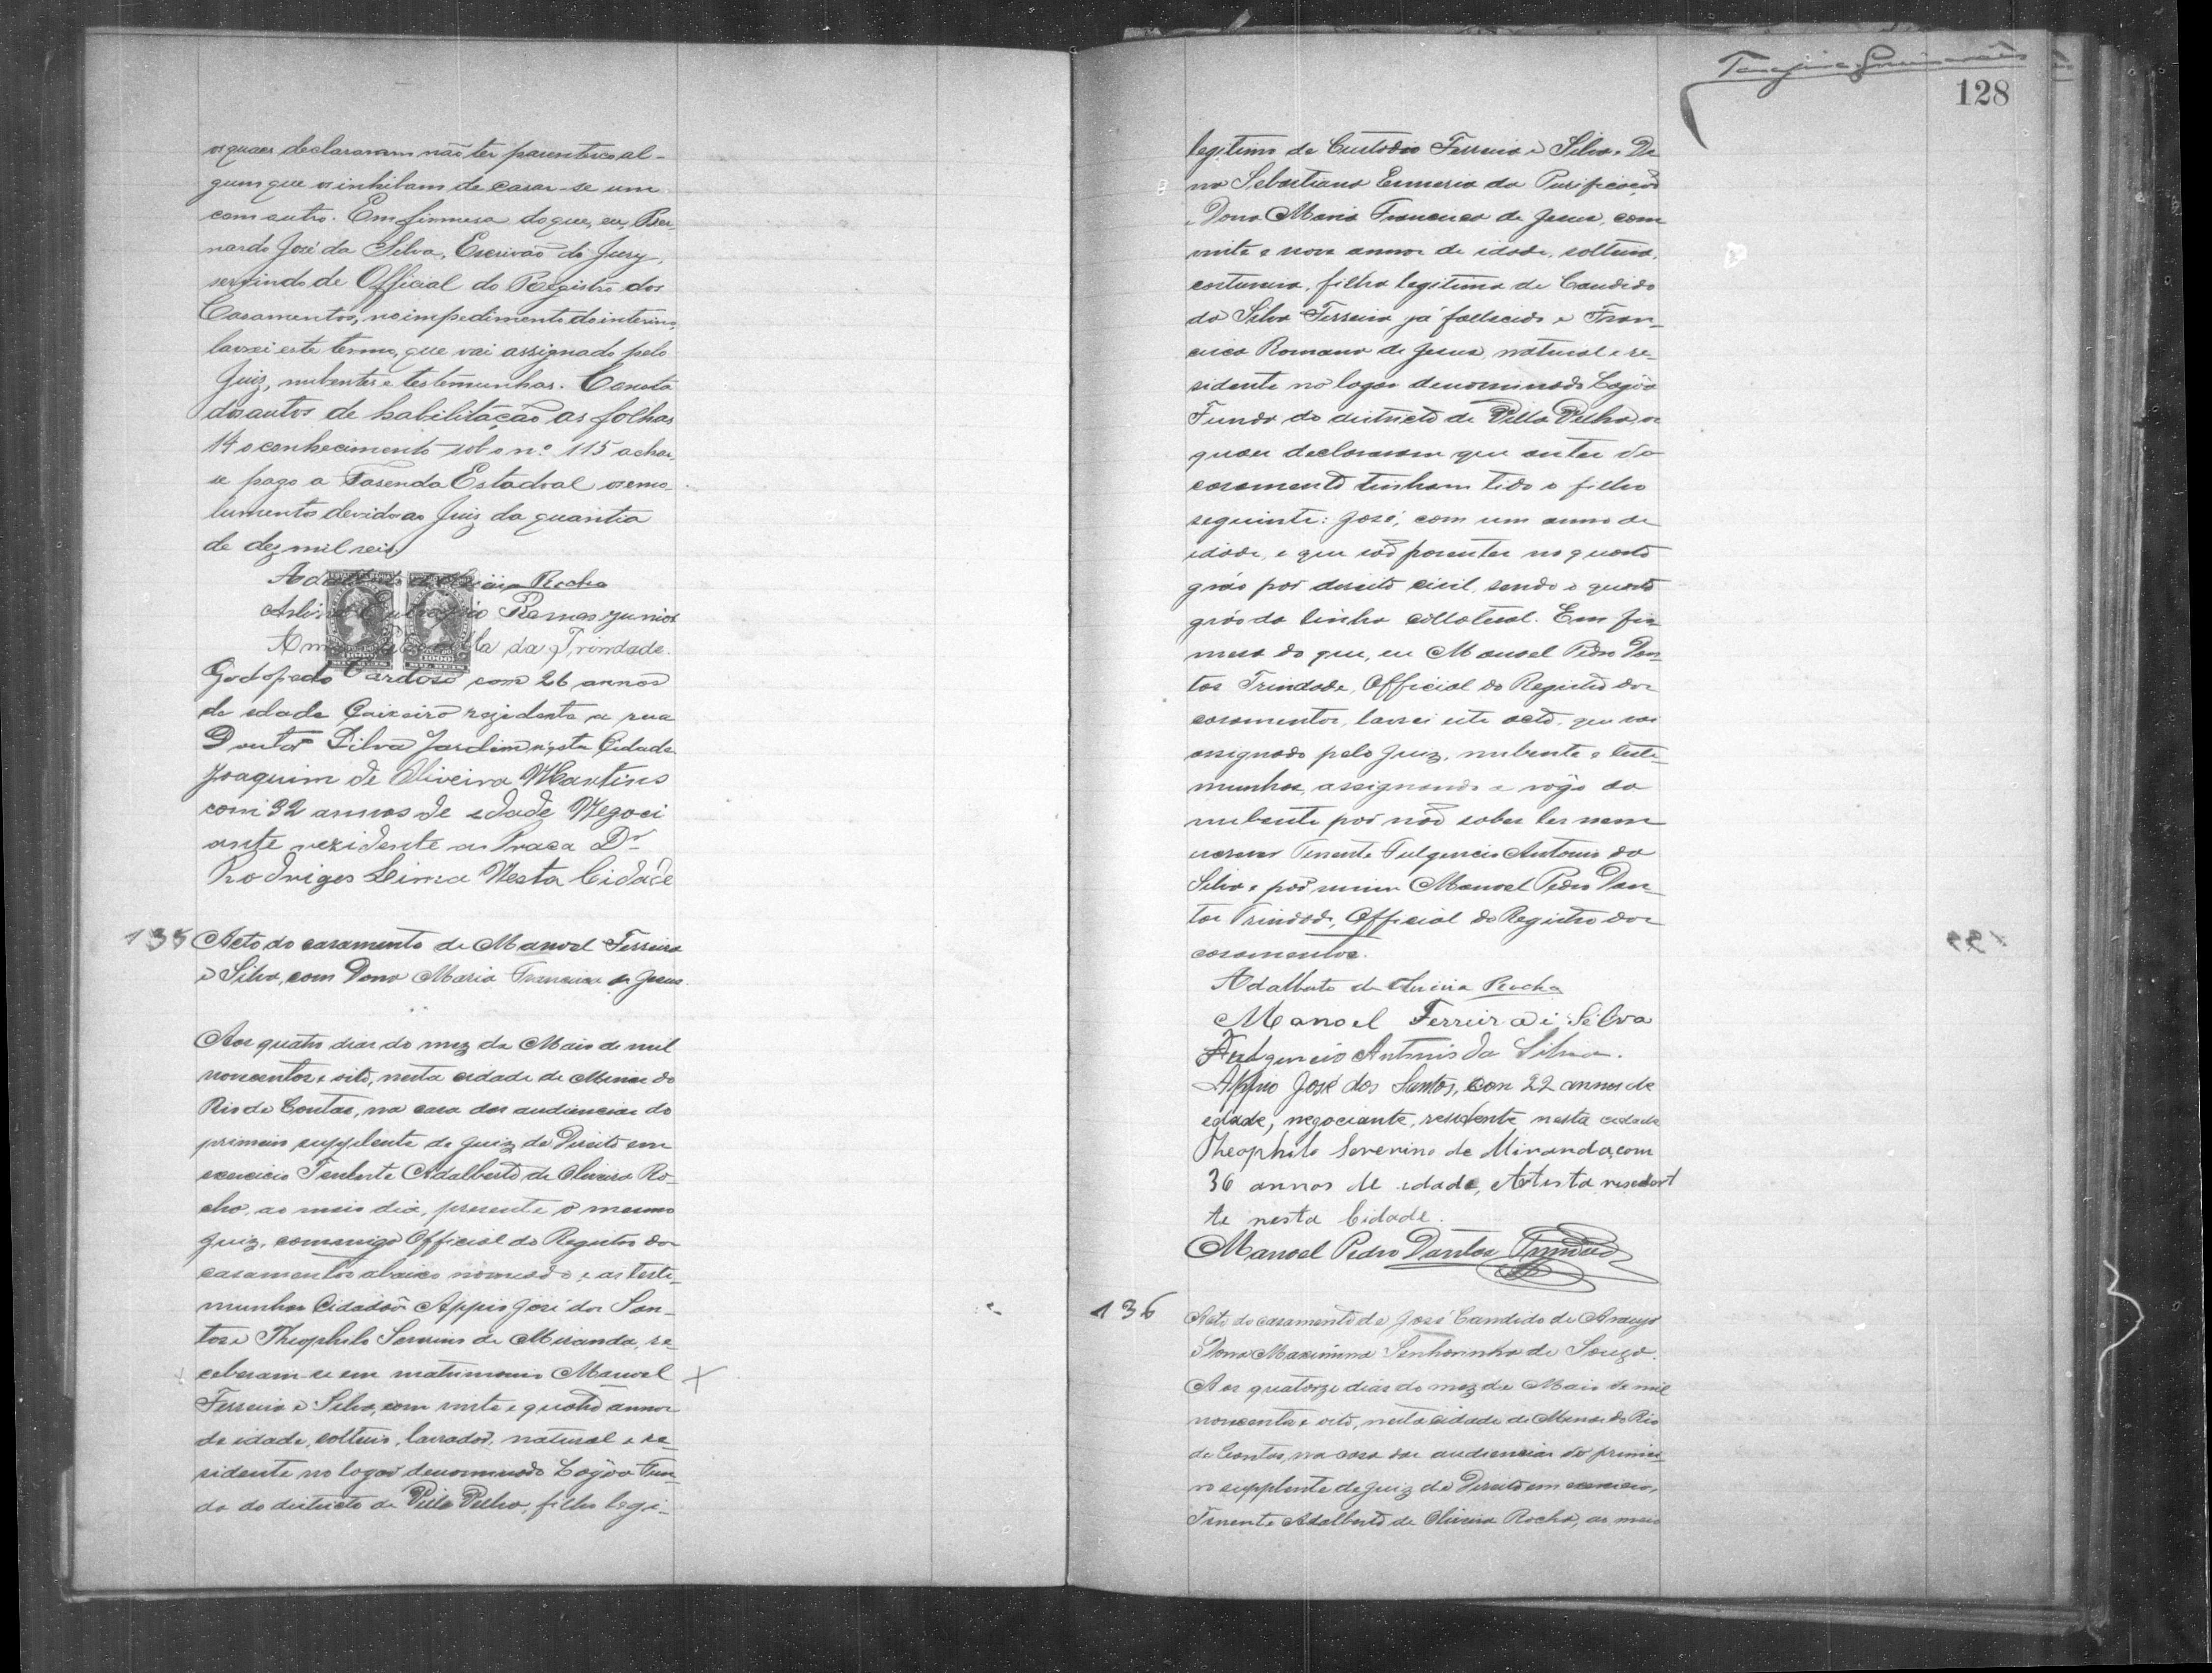 os quaes declararam não ter parentesco al-
gum que os inhibam de casar-se um
com outro. Em firmesa do que, eu, Ber-
nardo José da Silva, Escrivão do Jury,
servindo de Official do Registro dos
Casamentos, no impedimento do interino,
lavrei este termo, que vai assignado pelo
Juiz, nubentes e testemunhas. Consta
dos autos de habilitação as folhas
14 o conhecimento sob o n.º 115 achar-
se pago a Fasenda Estadoal os emo-
lumentos devidos ao Juiz da quantia
de dez mil reis.
Adalberto de Oliveira Rocha
Ramos Junior
da Trindade.
Godofredo Cardoso com 26 annos
de edade Caixeiro rezidente a rua
Doutor Silva Jardim nesta Cidade
Joaquim de Oliveira Martins
com 32 annos de edade Negoci
ante rezidente a Praca Dr
Rodriges Lima Nesta Cidade
135 Acto do casamento de Manoel Ferreira
e Silva, com Dona Maria Francisca de Jesus.
Aos quatro dias do mez de Maio de mil
novecentos e oito, nesta cidade de Minas do
Rio de Contas, na casa das audiencias do
primeiro supplente de Juiz de Direito em
exercicio Tenente Adalberto de Oliveira Ro-
cha, ao meio dia, presente o mesmo
Juiz, commigo Official do Registro dos
casamentos abaixo nomeado, e as teste-
munhas Cidadãos Appio José dos San-
tos e Theophilo Severino de Miranda, re-
ceberam-se em matrimonio Manoel
Ferreira e Silva, com vinte e quatro annos
de edade, solteiro, lavrador, natural e re-
sidente no logar denominado Lagôa Fun-
da do districto de Villa Velha, filho legi-
128
legitimo de Custodio Ferreira e Silva e Do
na Sebastiana Emeria da Purificação
e Dona Maria Francisca de Jesus, com
vinte e nove annos de idade, solteira,
costureira, filha legitima de Candido
da Silva Ferreira já fallecido e Fran-
cisca Romana de Jesus, natural e re-
sidente no logar denominado Lagôa
Funda do districto de Villa Velha, os
quaes declararam que antes do
casamento tinham tido o filho
seguinte: José, com um anno de
idade, e que são parentes no quarto
gráo por direito civil, sendo o quarto
gráo da linha collateral. Em fir
mesa do que, eu Manoel Pedro Dan-
tas Trindade, Official do Registro dos
casamentos, lavrei este acto, que vai
assignado pelo Juiz, nubente e teste-
munhas, assignando a rôgo da
nubente por não saber ler nem
escrever Tenente Fulgencio Antonio da
Silva e por mim Manoel Pedro Dan-
tas Trindade, Official do Registro dos
casamentos.
Adalberto de Oliveira Rocha
Manoel Ferreira i Silva
Fulgencio Antonio da Silva.
Appio José dos Santos, com 22 annos de
edade, negociante, residente nesta cidade
Theophilo Severino de Miranda, com
36 annos de idade, Artista, resedent
te nesta Cidade.
Manoel Pedro Dantas Trindade
136 Acto do casamento de José Candido de Araujo
Dona Maximina Senhorinha de Souza.
Aos quatorze dias do mez de Maio de mil
novecentos e oito, nesta cidade de Minas do Rio
de Contas, na casa das audiencias do primei-
ro supplente de Juiz de Direito em exercicio,
Tenente Adalberto de Oliveira Rocha, ao meio